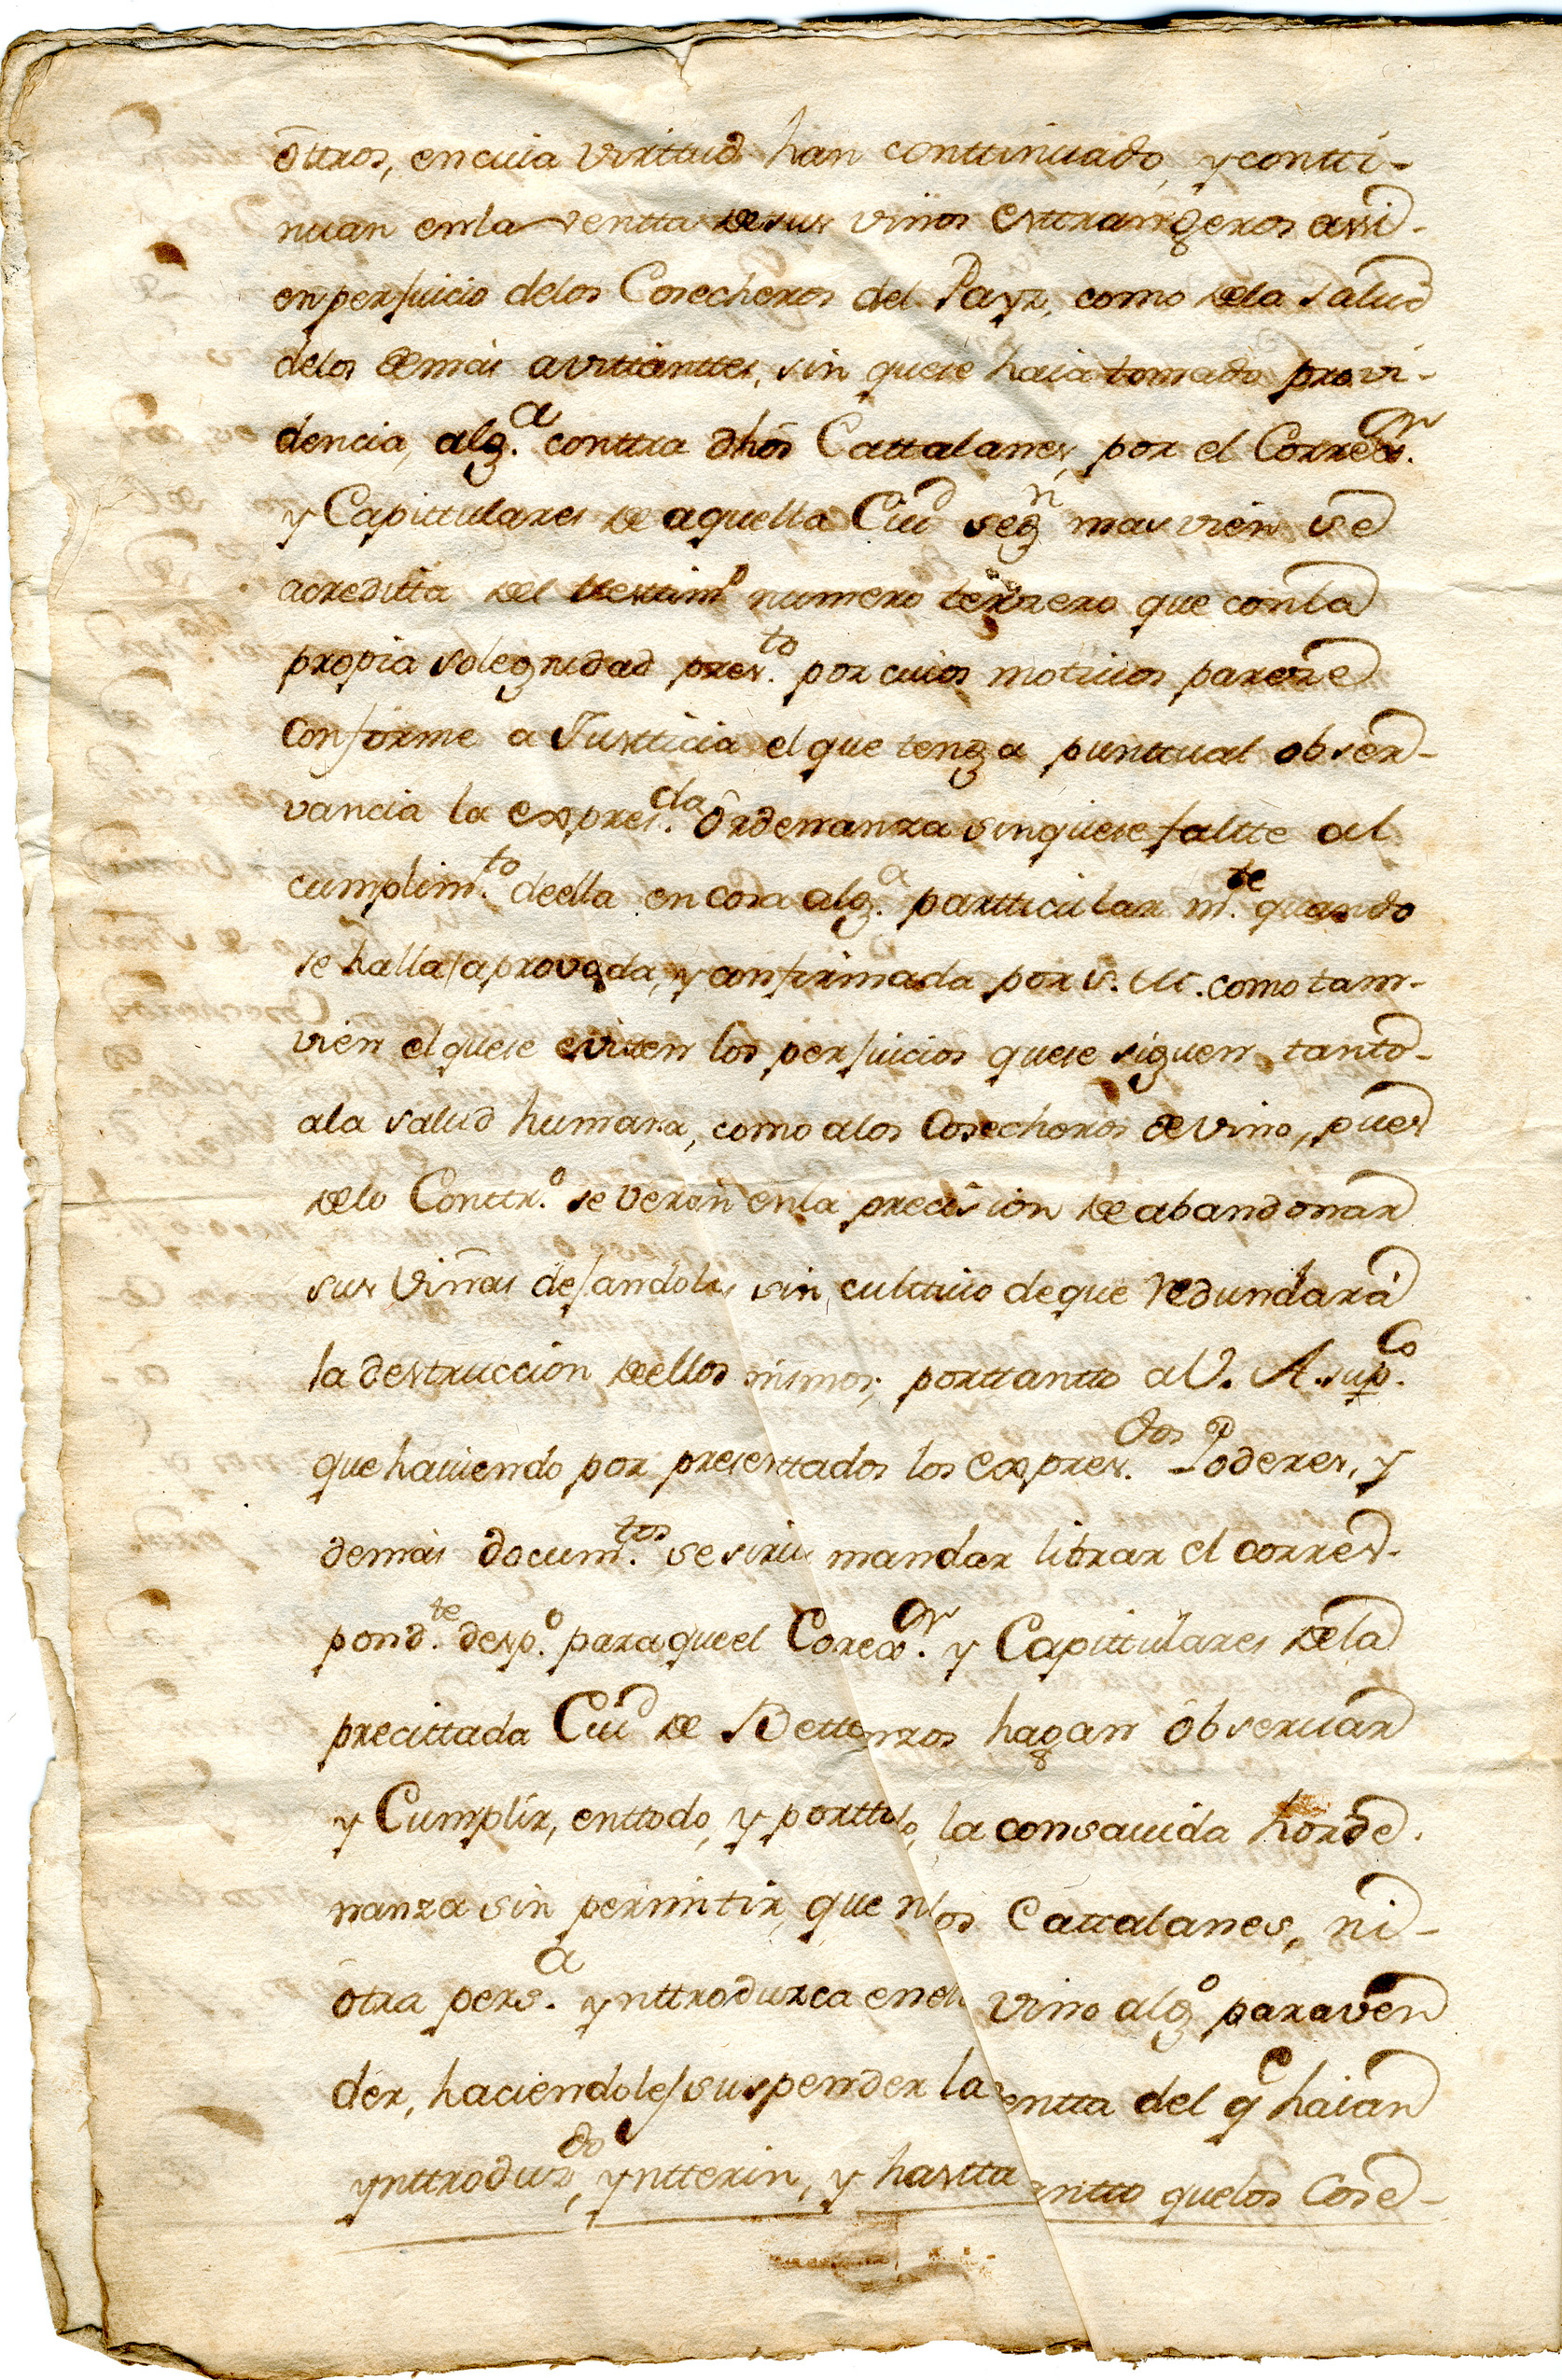 ottros, en cuia virttud han conttinuado, y contti-
nuan en la ventta de sus vinos esttrangeros assi
en perjuicio delos Cosecheros del Payz, como dela salud
delos demas avittanttes, sin quese haia tomado provi-
dencia, alg.a conttra dhos Cattalanes, por el Correx.or
y Capittulares de aquella Ciud segn mas vien se
acreditta del ttestimo numero terzero que con la
propia solegnidad pres.to por cuios motiuos pareze
conforme a Justticia el que tenga punttual obser-
vancia la expres.da Ordenanza sin quese faltte al
cumplim.to de ella en cosa alg.a partticular m.te quando
se halla aprovada, y confirmada por S. M. como tam-
vien el quese evitten los perjuicios quese siguen tanto
ala salud humana, como alos Cosecheros de vino, pues
delo Conttr.o se veran en la precision de abandonar
sus viñas dejandolas sin culttiuo de que redundará
la destruccion de ellos mismos; porttantto a V. A. sup.co
que hauiendo por presenttados los expres.dos Poderes, y
demas docum.tos se sirua mandar librar el corres-
pond.te desp.o para que el Corex.or y Capittulares dela
precittada Ciud de Bettanzos hagan observar
y Cumplir, enttodo, y portto, la consauida horde
nanza sin permitir, que los Cattalanes, ni
otra pers.a ynttroduzca en el vino algo para ven
der, haciendoles suspender la ventta del qe haian
ynttroduzdo, yntterin, y hastta tantto quelos Cose-